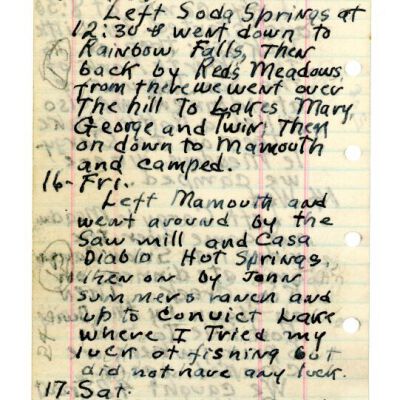 Left Soda Springs at
12:30 & went down to
Rainbow Falls, Then
back by Reds Meadows,
from there we went over
The hill To Lakes Mary,
George and Twin, Then
on down to Mamouth
and camped.
16- Fri.
Left Mamouth and
went around by the
Saw mill and Casa
Diablo Hot Springs,
Then on by John
Summers ranch and
up to Convict Lake
where I Tried my
luck at fishing but
did not have any luck.
17. Sat.